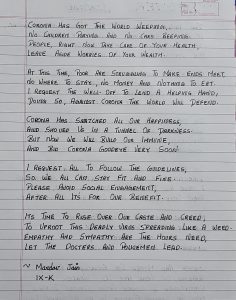 Corona has got the world weeping,
No children playing and no care keeping.
People, right now take care of your health,
Leave aside worries of your wealth.
At this time, poor are struggling to make ends meet,
No where to stay, no money and nothing to eat.
I request the well-off to lend a helping hand,
Doing so, against corona the world will defend.
Corona has snatched all our happiness,
And shoved us in a tunnel of darkness.
But now we will build our immune,
And bid corona goodbye very soon!
I request all to follow the guidelines,
So we all can stay fit and fine.
Please avoid social engagement,
After all its for our benefit.
Its time to rise over our caste and creed,
To uproot this deadly virus spreading like a weed.
Empathy and sympathy are the hours need,
Let the doctors and policemen lead.
~ Jain
IX-K